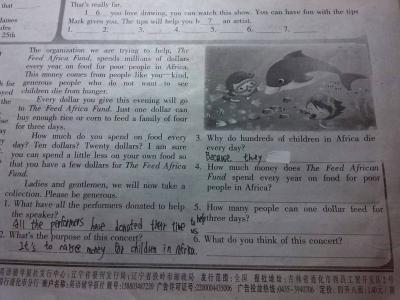 that
That's really far.
1 6 you love drawing, you can watch this show. You can have fun with the tips
Mark gives you. The tips will help you b 7 an artist.
1. 2. 3. 4. 5. 6. 7.
25th
The organization we are trying to help, The
Feed Africa Fund, spends millions of dollars
every year on food for poor people in Africa.
This money comes from people like you—kind,
generous people who do not want to see
children die from hunger.
Every dollar you give this evening will go
to The Feed Africa Fund. Just one dollar can
buy enough rice or corn to feed a family of four
for three days.
How much do you spend on food every
day? Ten dollars? Twenty dollars? I am sure
you can spend a little less on your own food so
that you have a few dollars for The Feed Africa
Fund.
Ladies and gentlemen, we will now take a
collection. Please be generous.
1. What have all the performers donated to help
the speaker?
All the performers have donated their time to help us
2. What's the purpose of this concert?
It's to raise money for children in Africa.
3. Why do hundreds of children in Africa die
every day?
Because they
4. How much money does The Feed African
Fund spend every year on food for poor
people in Africa?
5. How many people can one dollar feed for
three days?
6. What do you think of this concert?